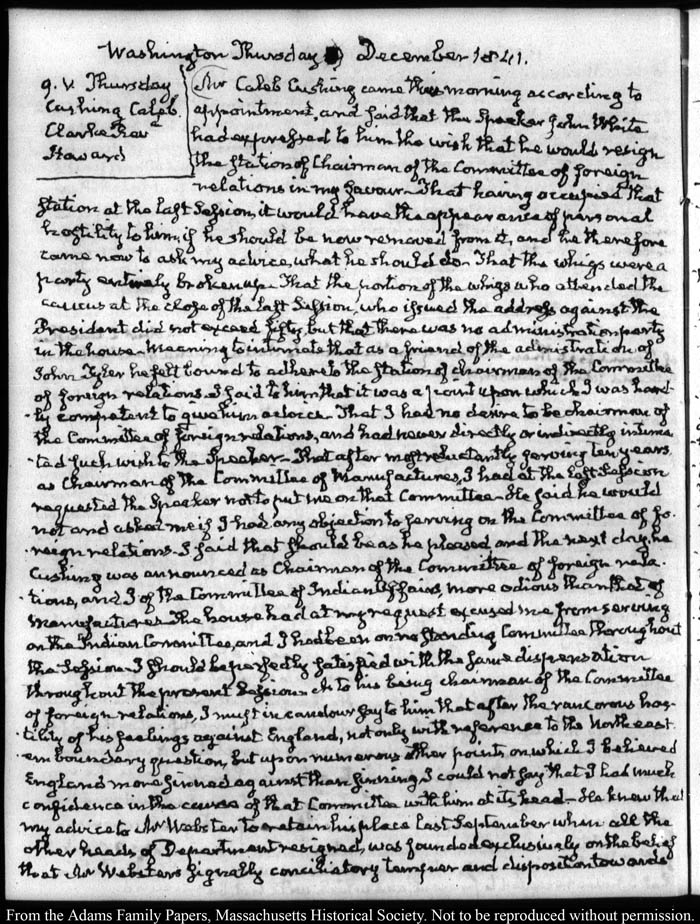 Washington Thursday 9 December 1841.
9. V. Thursday
Cushing Caleb
Clarke
Howard
Mr Caleb Cushing came this morning according to
appointment, and said that the Speaker John White
had expressed to him the wish that he would resign
the station of Chairman of the Committee of foreign
relations in my favour— That having occupied that
station at the last Session, it would have the appearance of personal
hostility to him, if he should be now removed from it, and he therefore
came now to ask my advice, what he should do— That the whigs were a
party entirely broken up— That the portion of the whigs who attended the
caucus at the close of the last Session, who issued the address against the
President did not exceed fifty, but that there was no administration party
in the house— Meaning to intimate that as a friend of the administration of
John Tyler he felt bound to adhere to the station of chairman of the Committee
of foreign relations. I said to him that it was a point upon which I was hard-
ly competent to give him advice— That I had no desire to be chairman of
the Committee of foreign relations, and had never directly or indirectly intima-
ted such wish to the Speaker— That after most reluctantly serving ten years
as Chairman of the Committee of Manufactures, I had at the last Session
requested the Speaker not to put me on that Committee— He said he would
not and asked me if I had any objection to serving on the Committee of fo-
reign relations— I said that should be as he pleased and the next day, he
Cushing was announced as Chairman of the Committee of foreign rela-
tions, and I of the Committee of Indian Affairs, more odious than that of
Manufactures— The house had at my request excused me from serving
on the Indian Committee, and I had been on no standing Committee throughout
the Session— I should be perfectly satisfied with the same dispensation
throughout the present Session— As to his being chairman of the Committee
of foreign relations, I must in candour say to him that after the rancorous hos-
tility of his feelings against England, not only with reference to the North east-
ern boundary question, but upon numerous other points, on which I believed
England more sinned against than sinning, I could not say that I had much
confidence in the course of that Committee with him at its head— He knew that
my advice to Mr Webster to retain his place last September when all the
other heads of Department resigned, was founded exclusively on the belief
that Mr Webster's signally conciliatory temper and disposition towards
From the Adams Family Papers, Massachusetts Historical Society. Not to be reproduced without permission.